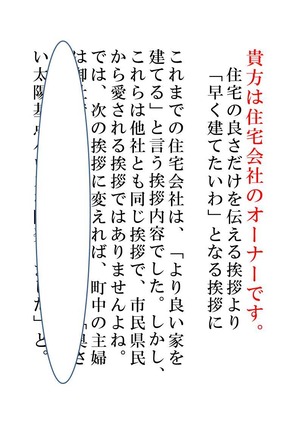 貴方は住宅会社のオーナーです。
住宅の良さだけを伝える挨拶より
「早く建てたいわ」となる挨拶に
これまでの住宅会社は、「より良い家を
建てる」と言う挨拶内容でした。しかし、
これらは他社とも同じ挨拶で、市民県民
から愛される挨拶ではありませんよね。
では、次の挨拶に変えれば、町中の主婦
は御
い太陽基
だ」と。